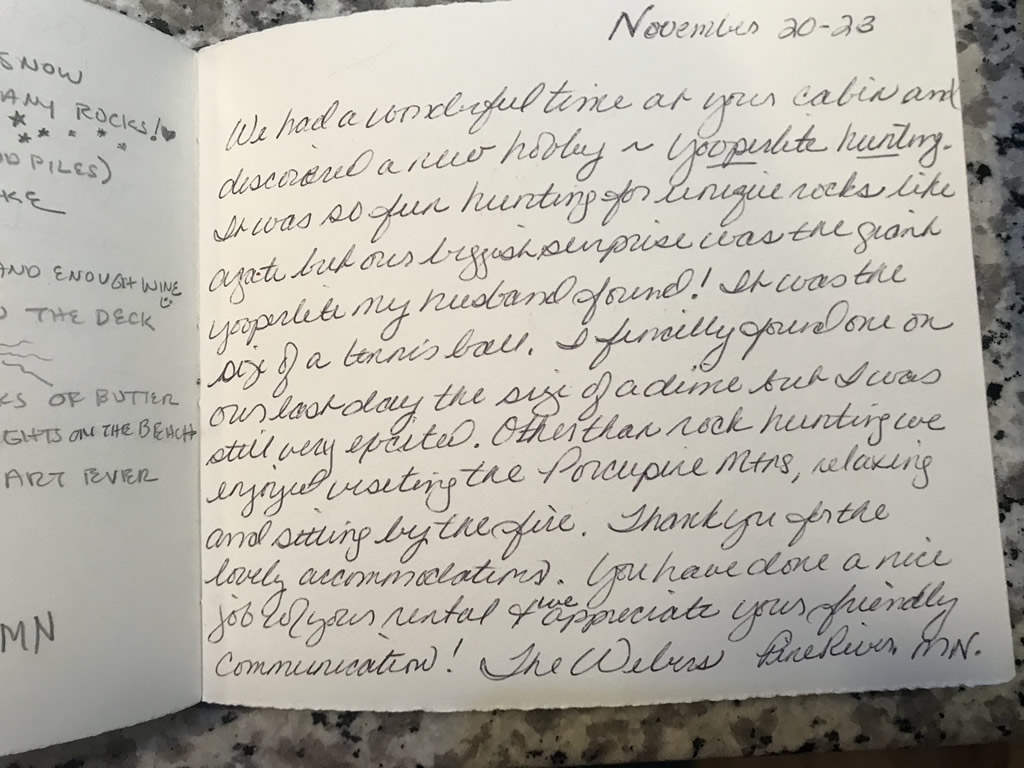 SNOW
ANY ROCKS!
PILES)
AND ENOUGH WINE
THE DECK
OF BUTTER
ON THE BEACH
ART EVER
MN
November 20-23
We had a wonderful time at your cabin and
discovered a new hobby ~ yooperlite hunting.
It was so fun hunting for unique rocks like
agate but our biggest surprise was the giant
yooperlite my husband found! It was the
size of a tennis ball. I finally found one on
our last day the size of a dime but I was
still very excited. Other than rock hunting we
enjoyed visiting the Porcupine Mtns, relaxing
and sitting by the fire. Thank you for the
lovely accommodations. You have done a nice
job of your rental & we appreciate your friendly
communication! The Webers Pine River, MN.